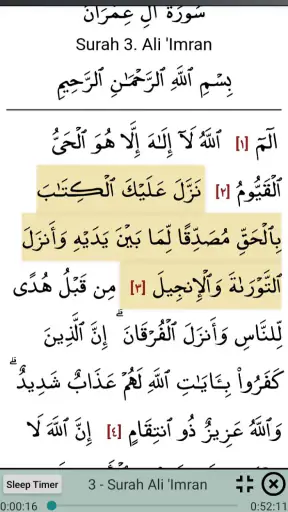 سُورَةُ آلِ عِمۡرَانَ
Surah 3. Ali 'Imran
بِسۡمِ ٱللَّهِ ٱلرَّحۡمَٰنِ ٱلرَّحِيمِ
الٓمٓ [١] ٱللَّهُ لَآ إِلَٰهَ إِلَّا هُوَ ٱلۡحَيُّ
ٱلۡقَيُّومُ [٢] نَزَّلَ عَلَيۡكَ ٱلۡكِتَٰبَ
بِٱلۡحَقِّ مُصَدِّقًا لِّمَا بَيۡنَ يَدَيۡهِ وَأَنزَلَ
ٱلتَّوۡرَىٰةَ وَٱلۡإِنجِيلَ [٣] مِن قَبۡلُ هُدًى
لِّلنَّاسِ وَأَنزَلَ ٱلۡفُرۡقَانَ ۗ إِنَّ ٱلَّذِينَ
كَفَرُواْ بِـَٔايَٰتِ ٱللَّهِ لَهُمۡ عَذَابٌ شَدِيدٌ ۗ
وَٱللَّهُ عَزِيزٌ ذُو ٱنتِقَامٍ [٤] إِنَّ ٱللَّهَ لَا
Sleep Timer 3 - Surah Ali 'Imran
0:00:16 0:52:11